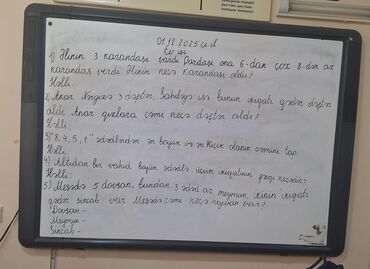 01.12.2025
Ev işi
1) Əlinin 3 karandaşı vardı Dardaşı ona 6-dan çox 8-dən az
karandaş verdi. Əlinin neçə karandaşı oldu?
Həlli:
2) Anar Nərgizə 3 dəftər, Sahiləyə isə bunun iki qatı qədər dəftər
aldı. Anar qızlara cəmi neçə dəftər aldı?
Həlli:
3) "8, 4, 5, 1" ədədlərindən ən böyük və ən kiçik olanın cəmini tap
Həlli:
4) Altıdan bir vahid böyük ədədlə, üçün iki qatının fərqi neçədir?
Həlli:
5) Meşədə 5 dovşan, bundan 3 ədəd az meymun, iki qatı
qədər sincab var. Meşədə cəmi neçə heyvan var?
Dovşan -
Meymun -
Sincab -